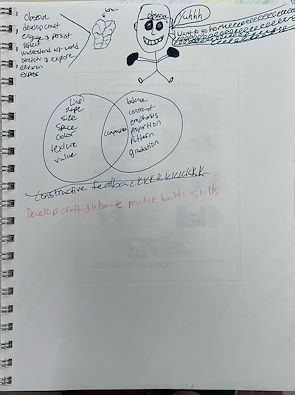 Observe
develop craft
engage & persist
Reflect
understand art world
stretch & explore
envision
express
uhhh
I want to go ho
Line
shape
size
Space
color
texture
value
composition
balance
contrast
emphasis
proportion
pattern
gradation
Constructive feedback
Develop craft deliberate practice builds skills